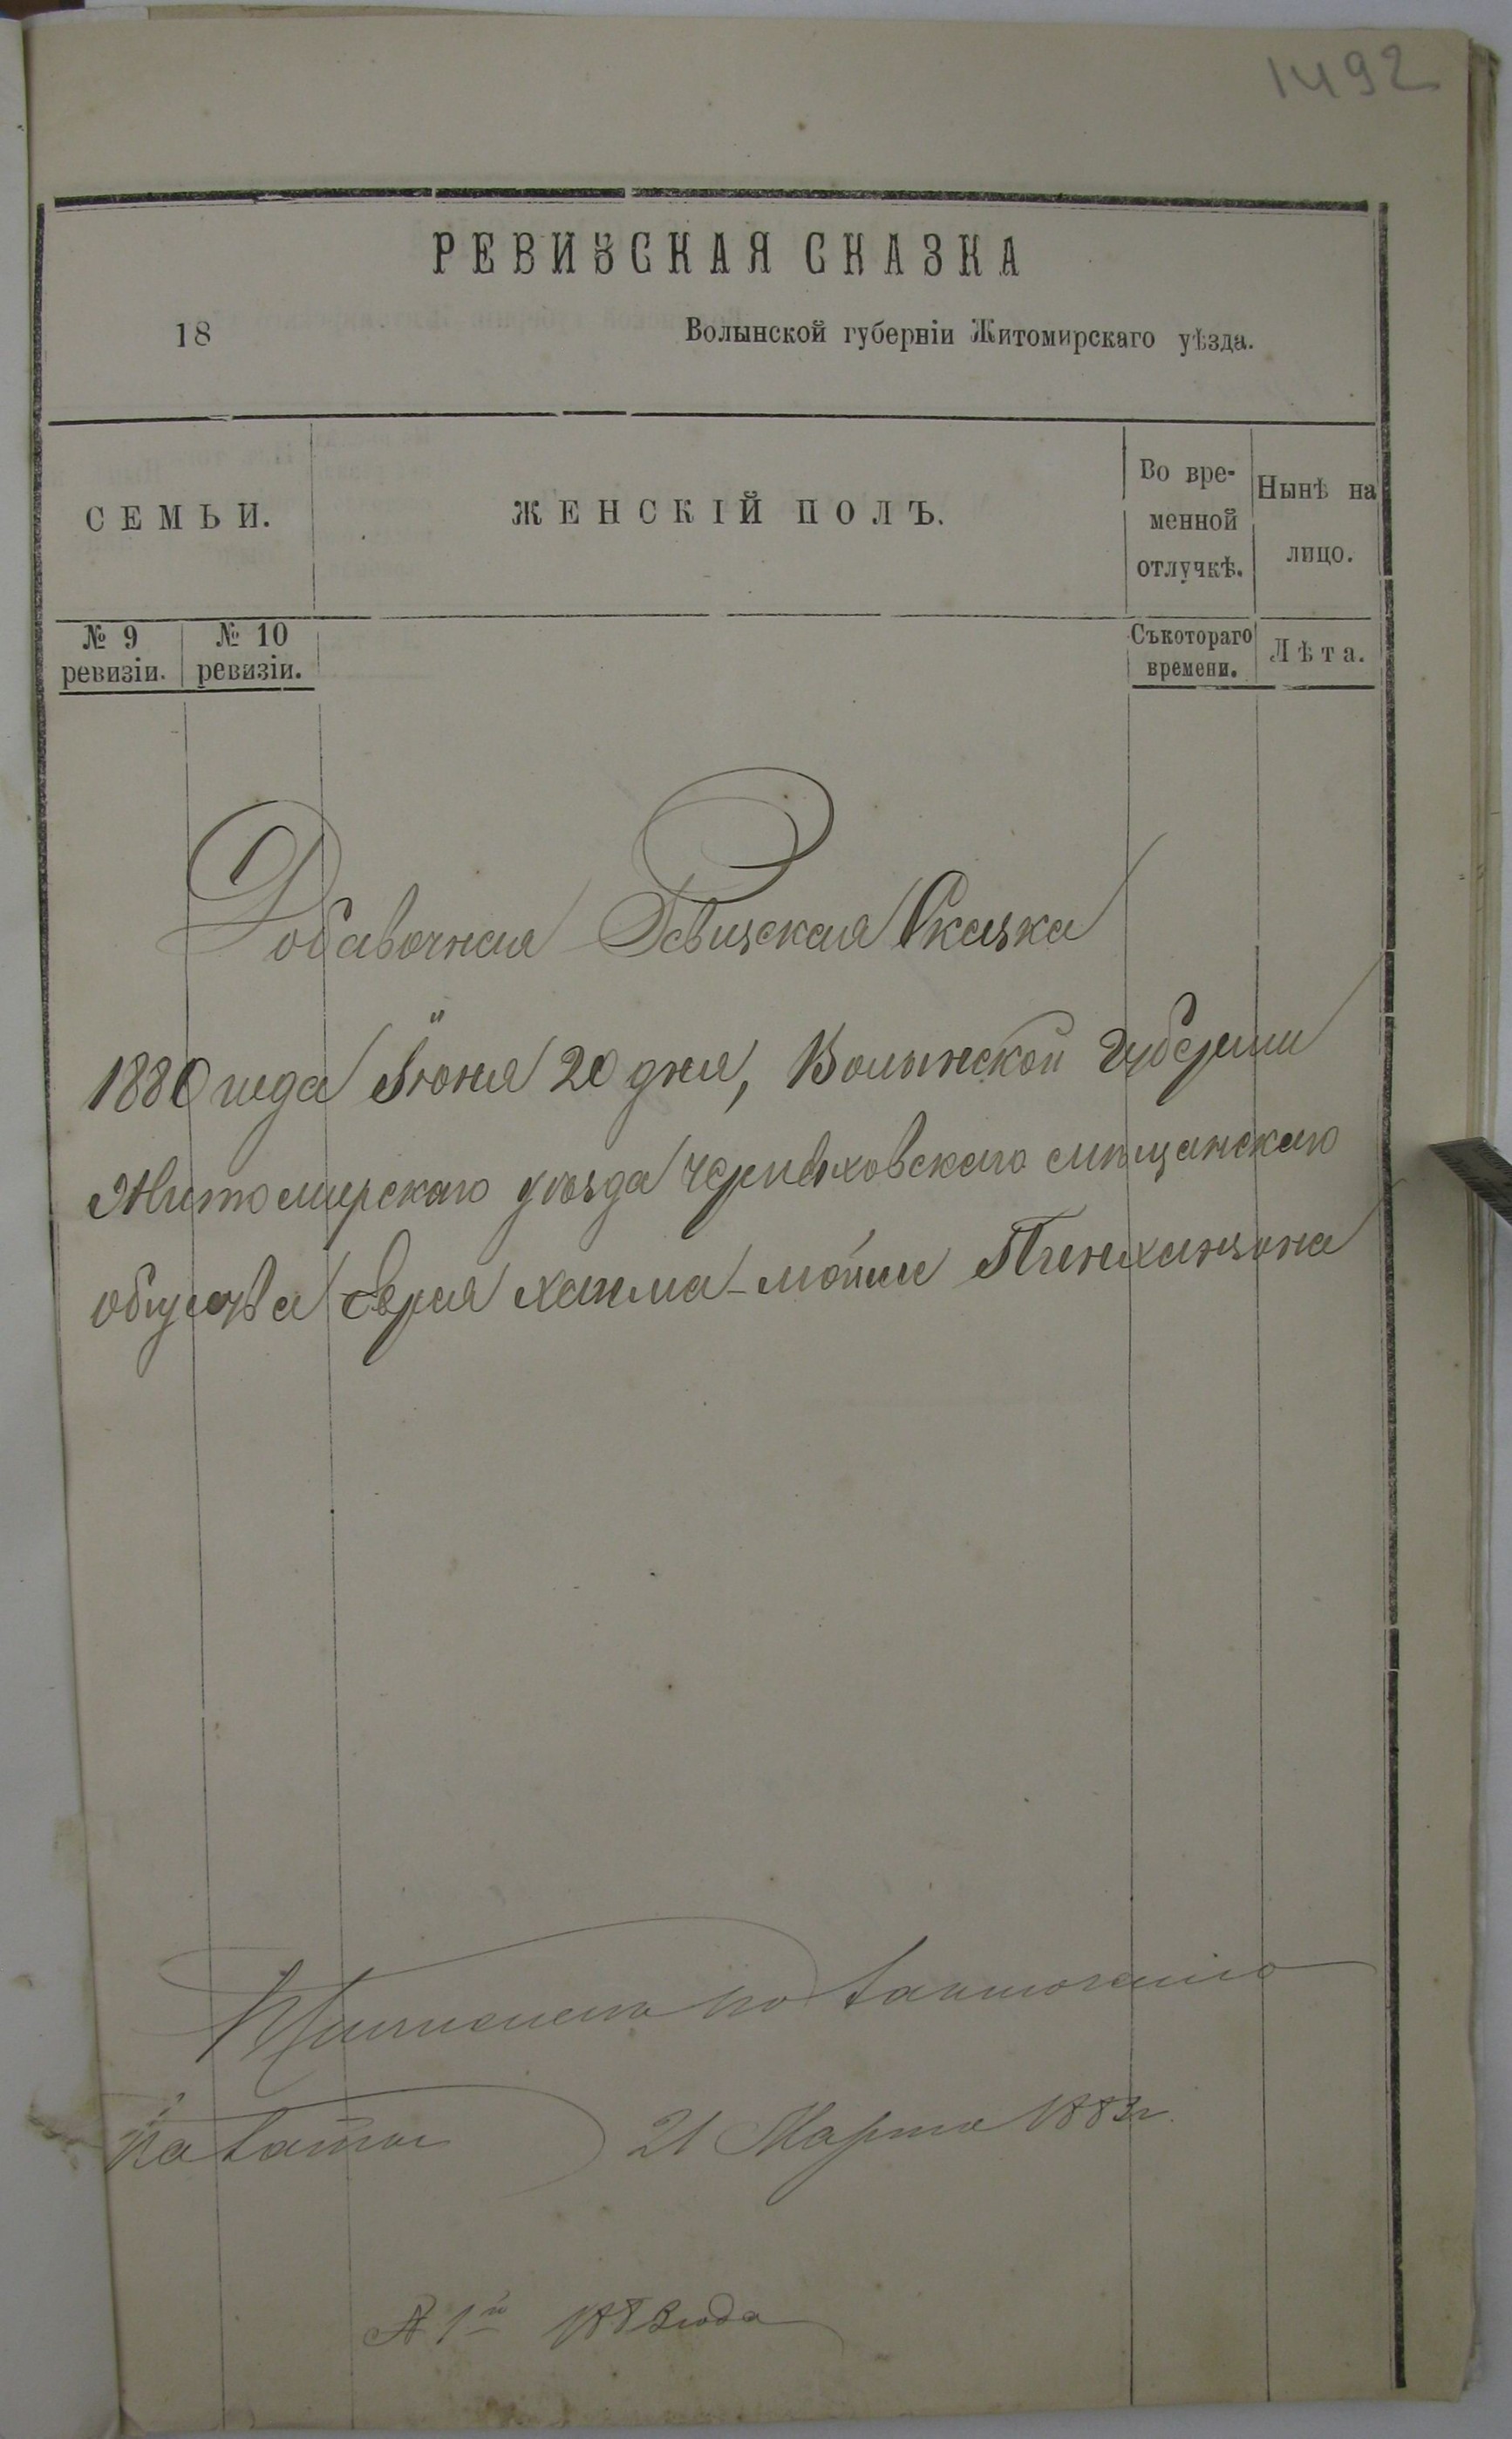 1492
РЕВИЗСКАЯ СКАЗКА
18 Волынской губерніи Житомирскаго уѣзда.
СЕМЬИ. ЖЕНСКІЙ ПОЛЪ. Во вре-менной отлучкѣ. Нынѣ на лицо.
№ 9 ревизіи. № 10 ревизіи. Съкотораго времени. Лѣта.
Добавочная Ревизская Сказка
1880 года Іюня 20 дня, Волынской Губерніи
Житомирскаго уѣзда Черняховскаго мѣщанскаго
общества Еврея Хаима-Мошки Пинхензона
по
21 Марта 1883 г.
1883 года